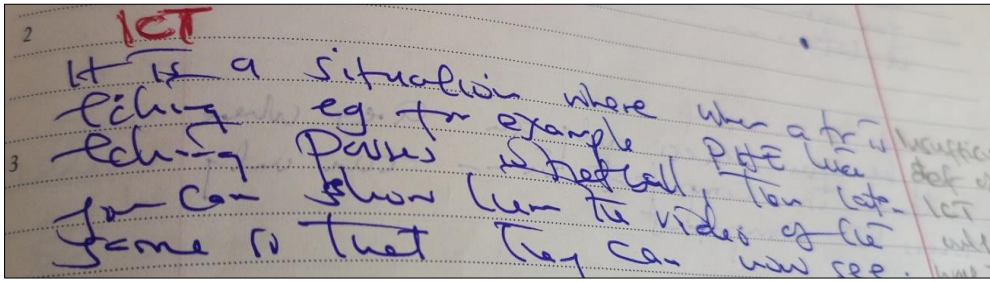 2 ICT
It is a situation where when a tr is
tching eg for example PHE like
3 tching passes in netball, Then later
you can show them the video of the
same so that they can now see.
Insuffici
def of
ICT